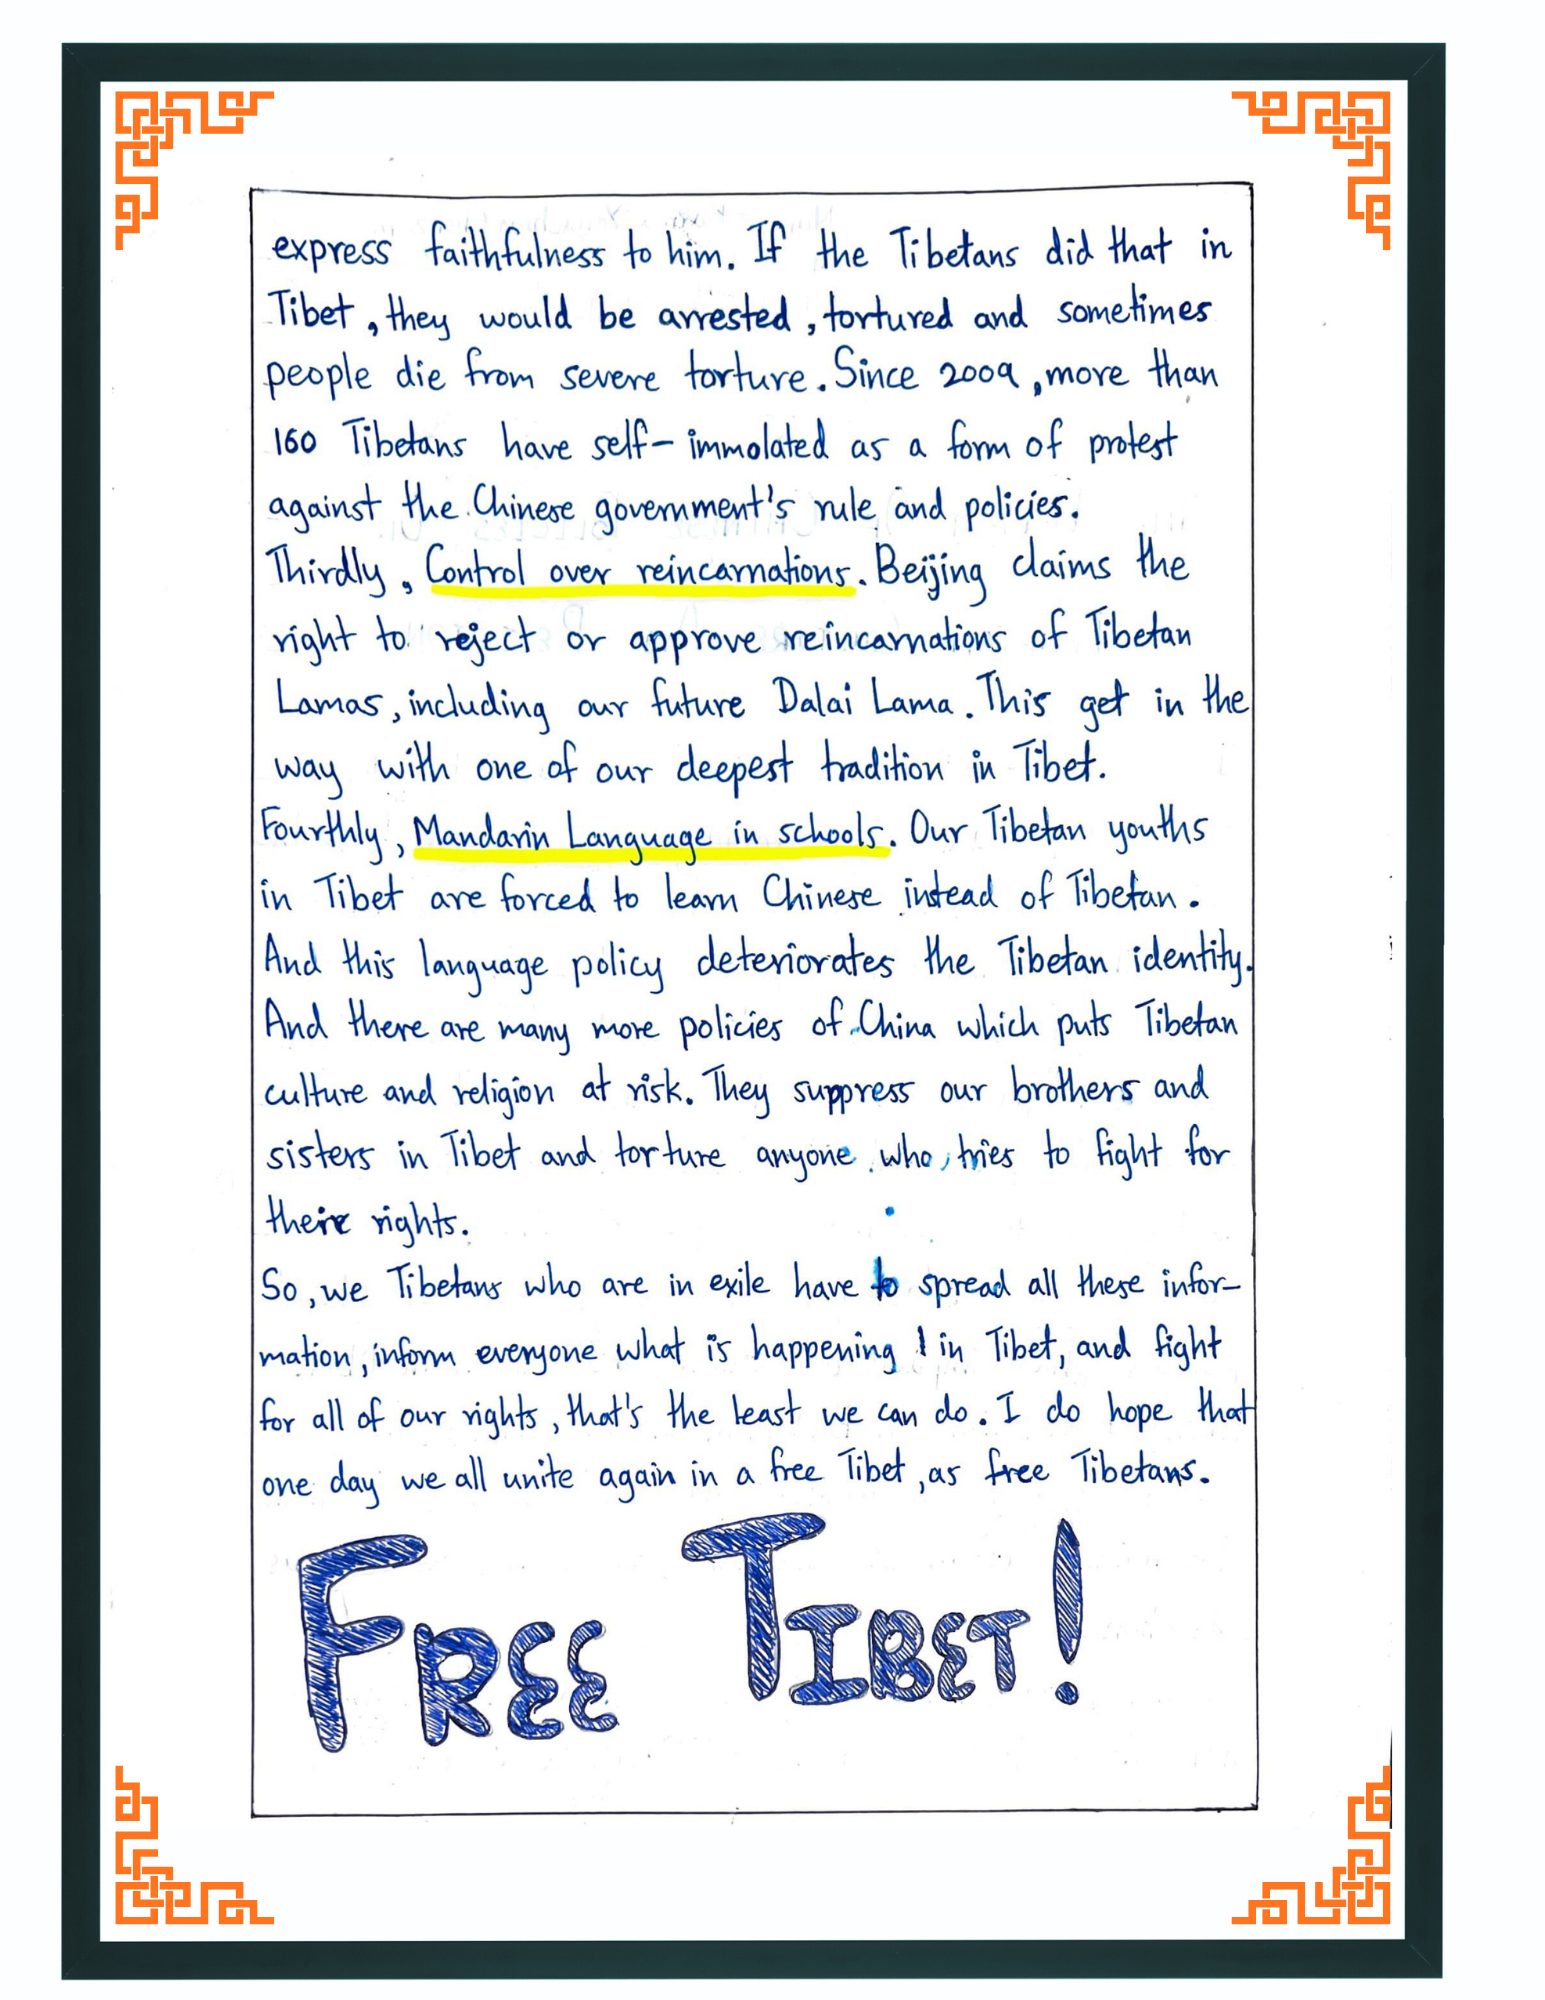 express faithfulness to him. If the Tibetans did that in
Tibet, they would be arrested, tortured and sometimes
people die from severe torture. Since 2009, more than
160 Tibetans have self-immolated as a form of protest
against the Chinese government's rule and policies.
Thirdly, Control over reincarnations. Beijing claims the
right to reject or approve reincarnations of Tibetan
Lamas, including our future Dalai Lama. This get in the
way with one of our deepest tradition in Tibet.
Fourthly, Mandarin Language in schools. Our Tibetan youths
in Tibet are forced to learn Chinese instead of Tibetan.
And this language policy deteriorates the Tibetan identity.
And there are many more policies of China which puts Tibetan
culture and religion at risk. They suppress our brothers and
sisters in Tibet and torture anyone who, tries to fight for
their rights.
So, we Tibetans who are in exile have to spread all these infor-
mation, inform everyone what is happening in Tibet, and fight
for all of our rights, that's the least we can do. I do hope that
one day we all unite again in a free Tibet, as free Tibetans.
FREE TIBET!